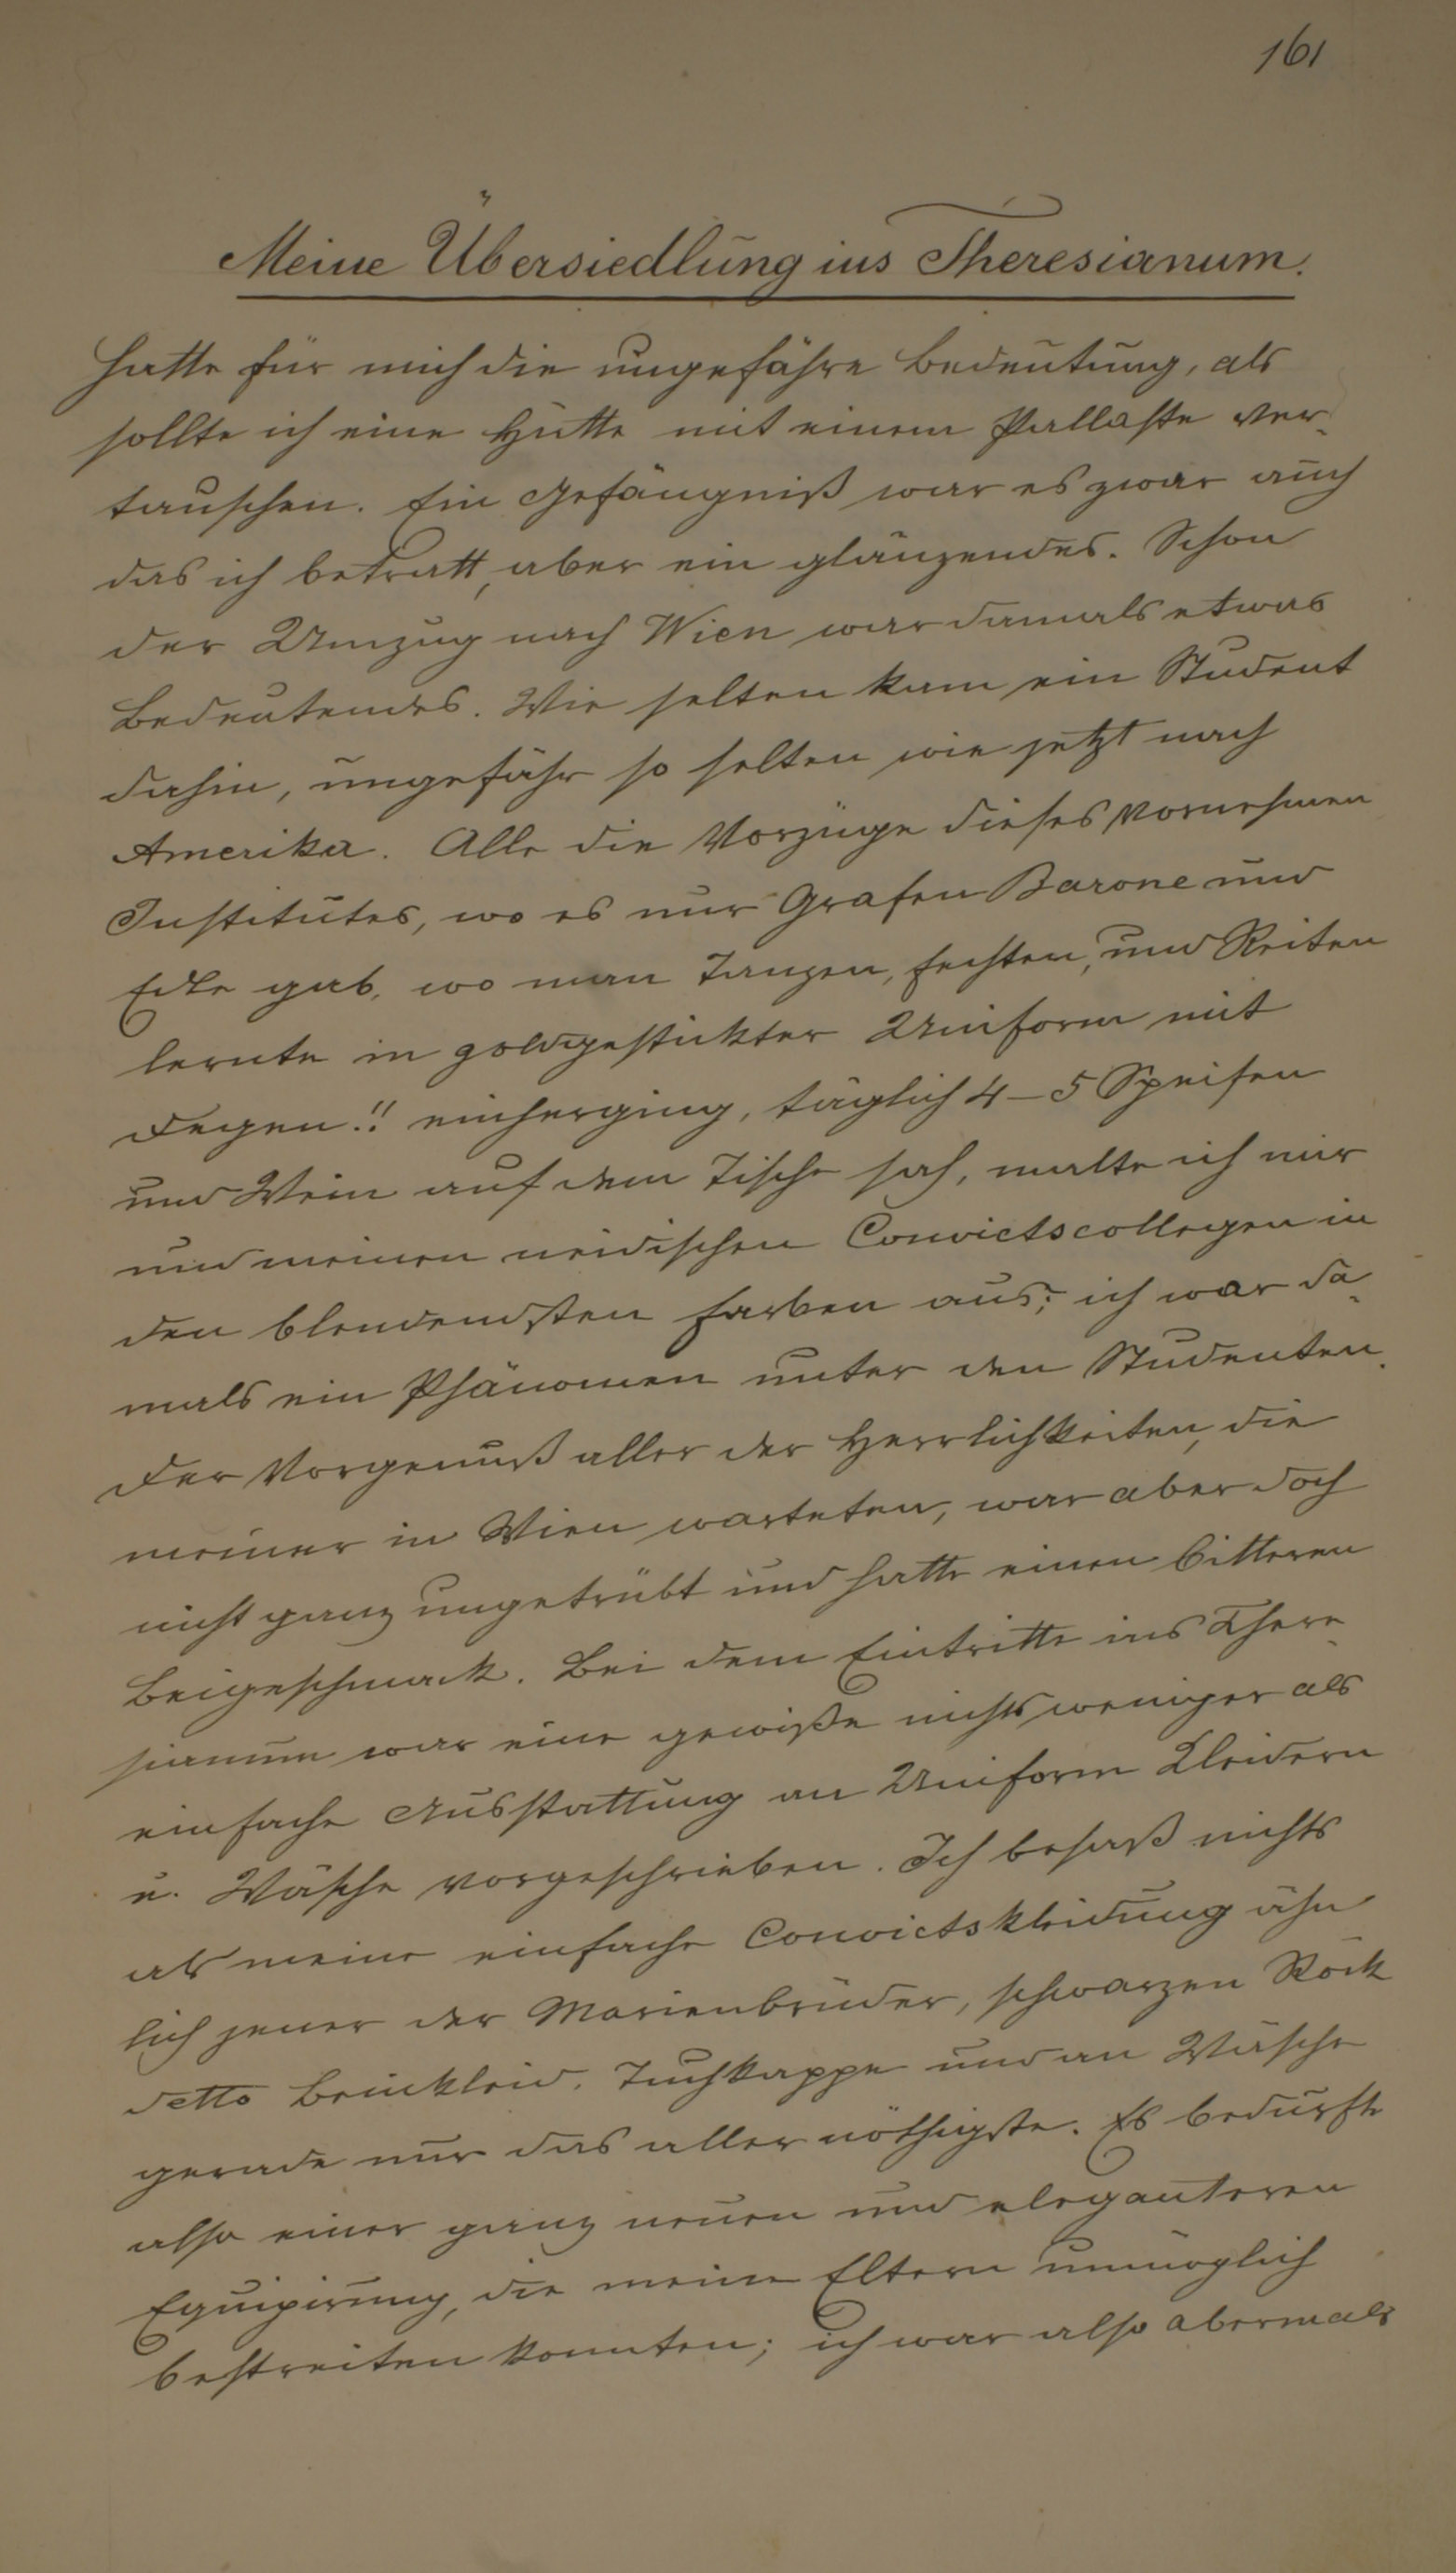 161
Meine Übersiedlung ins Theresianum.
hatte für mich die ungefähre Bedeutung, als
sollte ich eine Hütte mit einem Pallaste ver-
tauschen. Ein Gefängniß war es zwar auch
das ich betratt, aber ein glänzendes. Schon
der Umzug nach Wien war damals etwas
Bedeutendes. Wie selten kam ein Student
dahin, ungefähr so selten wie jetzt nach
Amerika. Alle die Vorzüge dieses vornehmen
Institutes, wo es nur Grafen Barone und
Edle gab, wo man Tanzen, Fechten, und Reiten
lernte in goldgestickter Uniform mit
Degen!! einherging, täglich 4–5 Speisen
und Wein auf dem Tische sah, malte ich mir
und meinen neidischen Convictscollegen in
den blendendsten Farben aus; ich war da-
mals ein Phänomen unter den Studenten.
Der Vorgenuß aller der Herrlichkeiten, die
meiner in Wien warteten, war aber doch
nicht ganz ungetrübt und hatte einen bitteren
Beigeschmack. Bei dem Eintritte ins There-
sianum war eine gewiße nichts weniger als
einfache Ausstattung an Uniform Kleidern
u. Wäsche vorgeschrieben. Ich besaß nichts
als meine einfache Convictskleidung ähn
lich jener der Marienbrüder, schwarzen Rock
detto Beinkleid, Tuchkappe und an Wäsche
gerade nur das aller nöthigste. Es bedurfte
also einer ganz neuen und eleganteren
Equipirung, die meine Eltern unmöglich
bestreiten konnten; ich war also abermals